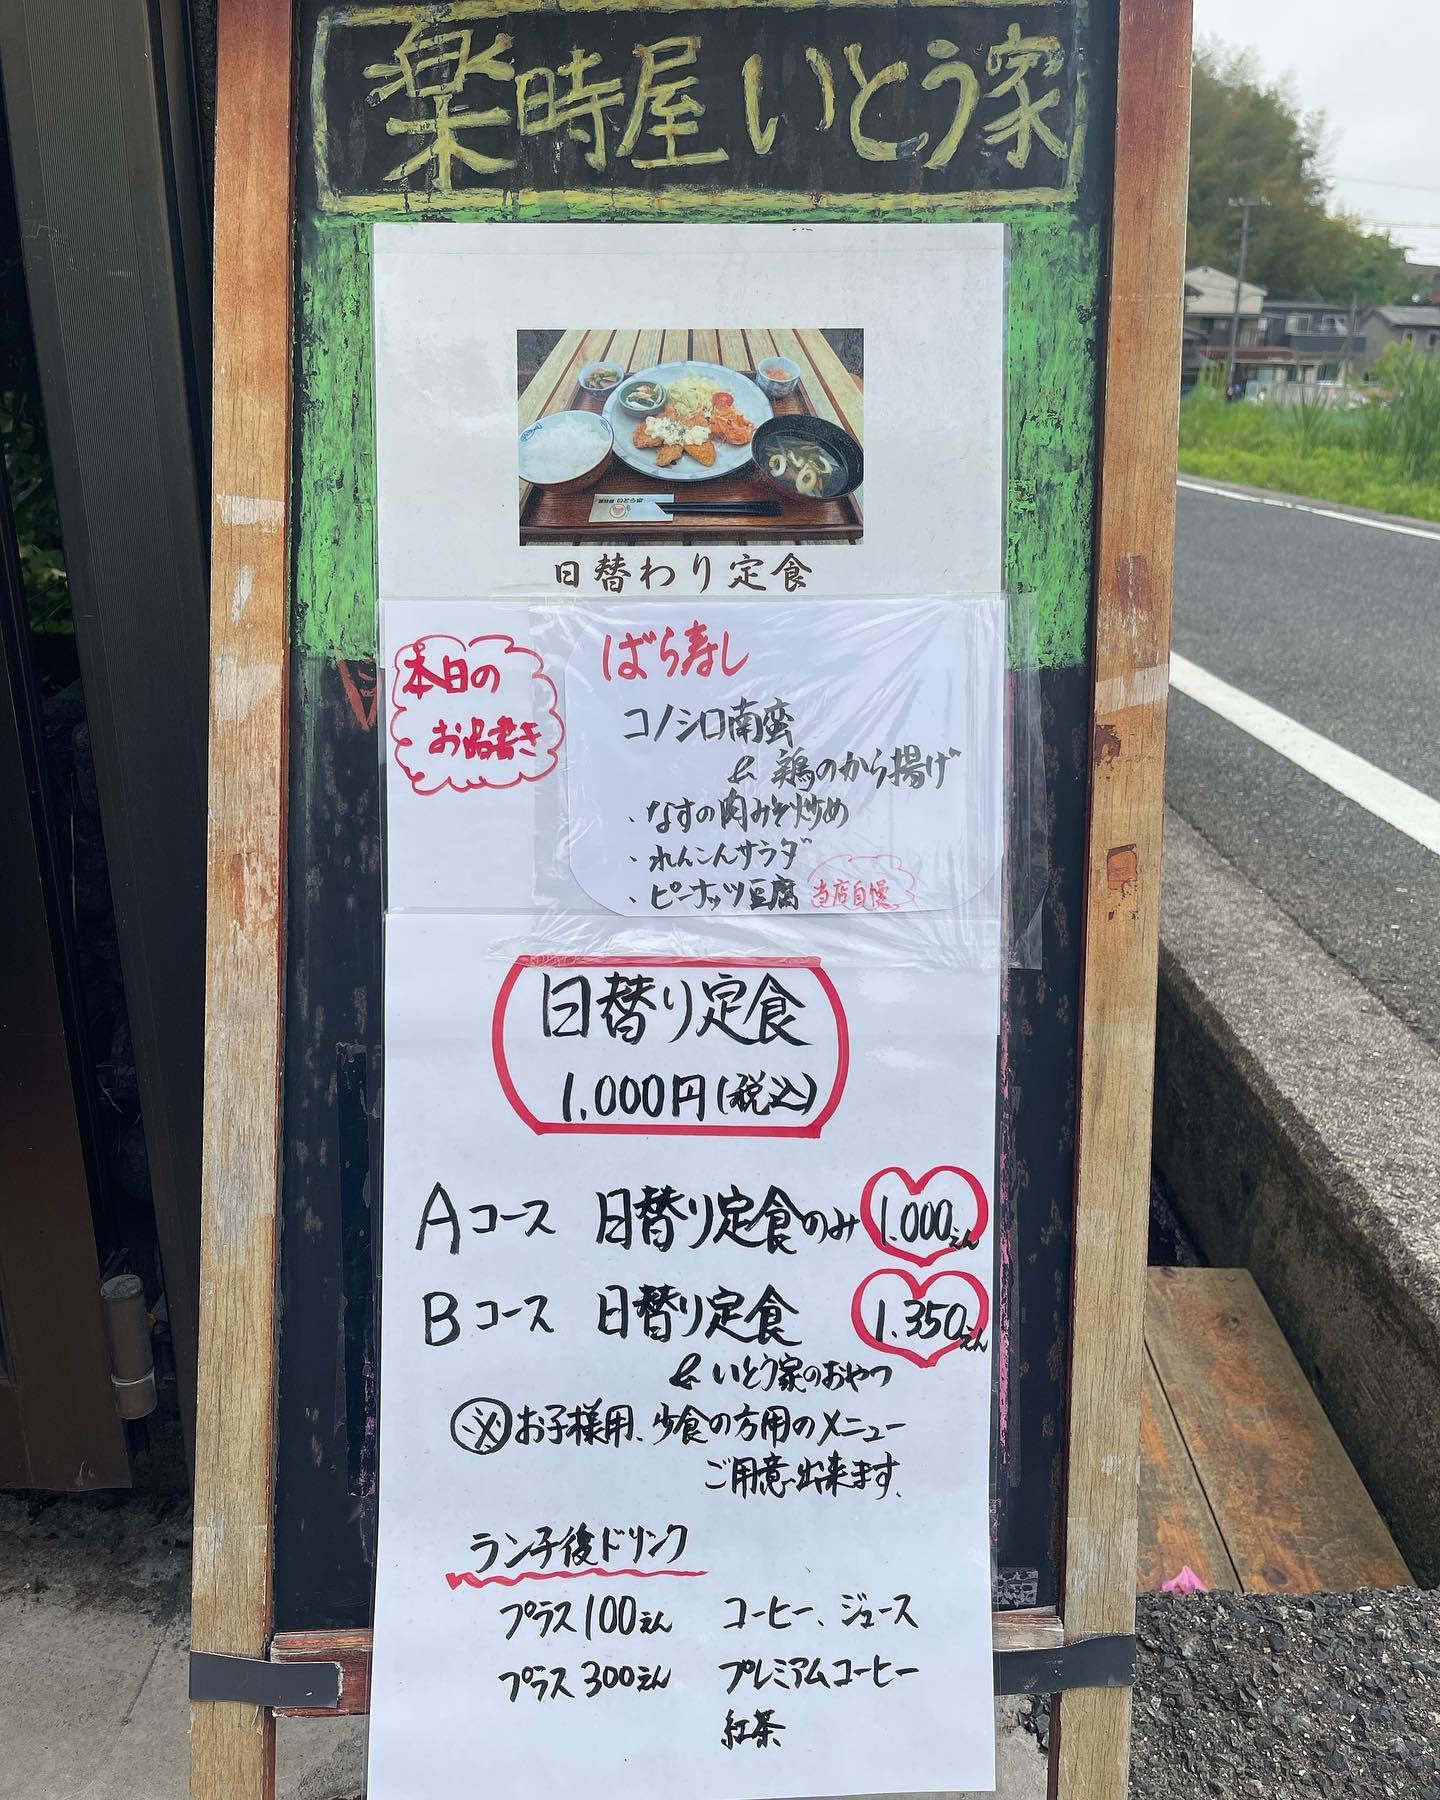 楽時屋 いとう家
いとう家
日替わり定食
本日の
お品書き
ばら寿し
コノシロ南蛮
& 鶏のから揚げ
、なすの肉みそ炒め
、れんこんサラダ
、ピーナッツ豆腐 当店自慢
日替り定食
1.000円(税込)
Aコース 日替り定食のみ 1.000えん
Bコース 日替り定食 1.350えん
& いとう家のおやつ
※お子様用、少食の方用のメニュー
ご用意出来ます。
ランチ後ドリンク
プラス100えん コーヒー、ジュース
プラス300えん プレミアムコーヒー
紅茶